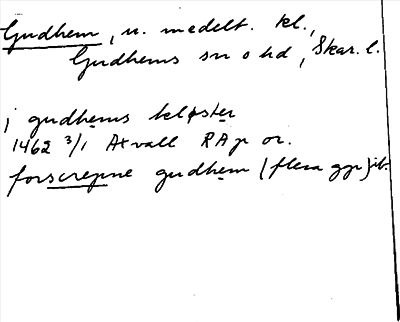 Gudhem, n. medelt. kl.,
Gudhems sn o hd, Skar. l.
j gudhems kloster
1462 3/1 Axvall RAp or.
forscrepne gudhem (flera ggr) ib.